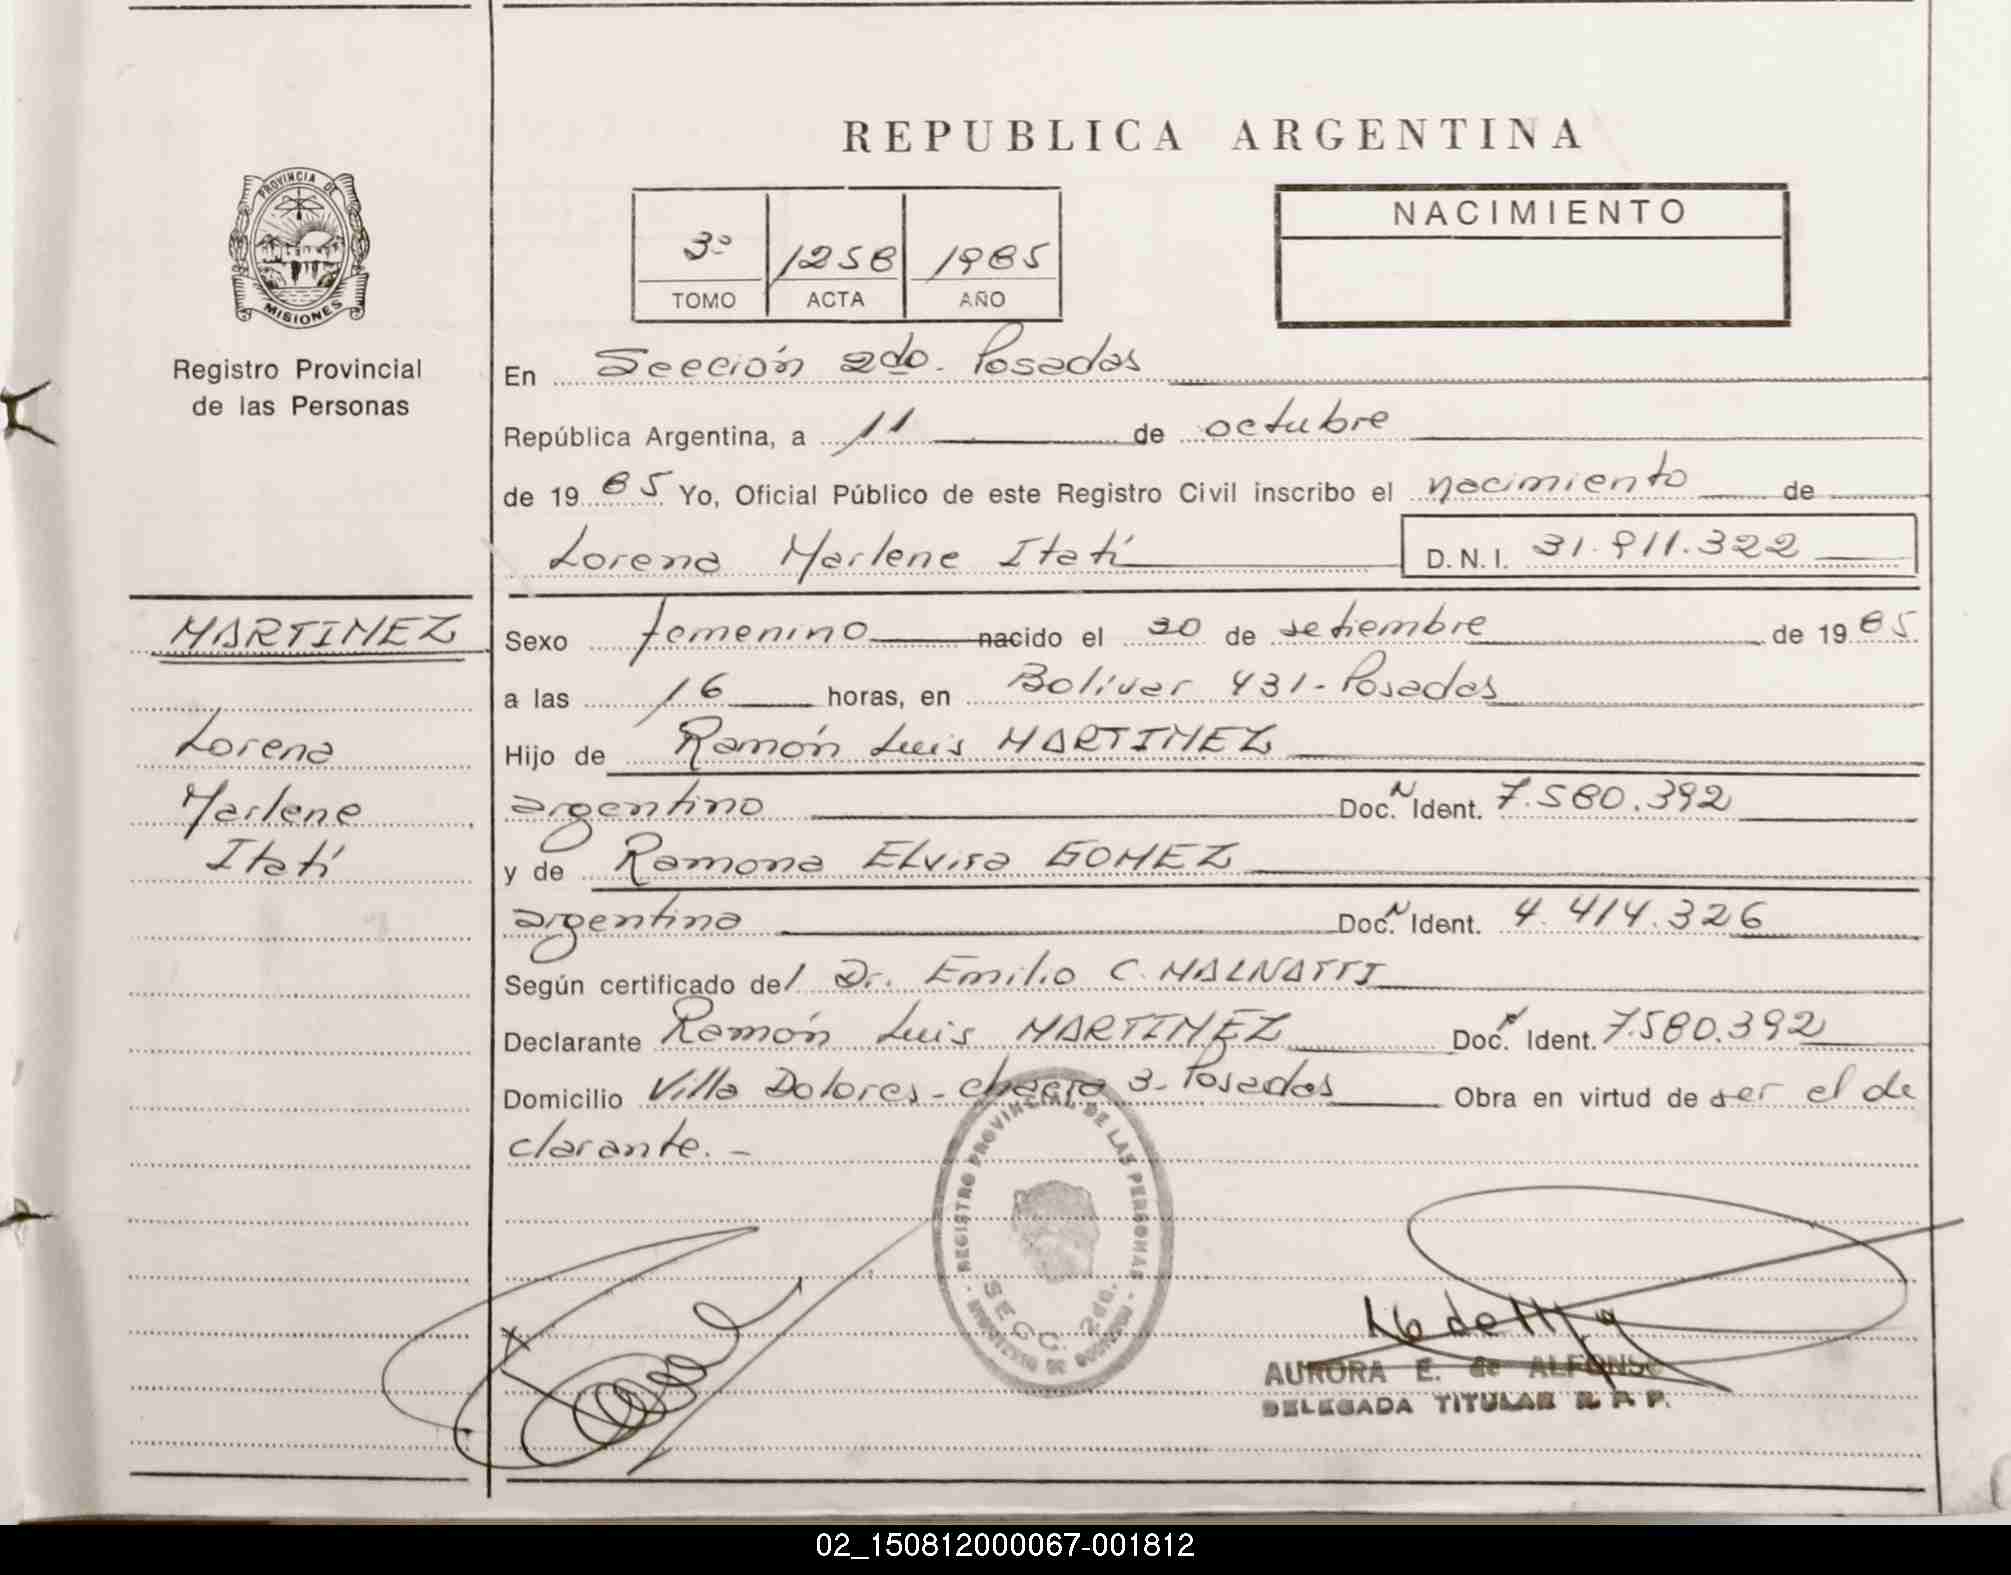 REPUBLICA ARGENTINA
PROVINCIA DE
MISIONES
Registro Provincial
de las Personas
3º 1258 1985
TOMO ACTA AÑO
NACIMIENTO
En Sección 2do. Posadas
República Argentina, a 11 de octubre
de 1985 Yo, Oficial Público de este Registro Civil inscribo el nacimiento de
Lorena Marlene Itatí D.N.I. 31.911.322
MARTINEZ
Lorena
Marlene
Itatí
Sexo femenino nacido el 30 de setiembre de 1985
a las 16 horas, en Bolívar 431-Posadas
Hijo de Ramón Luis MARTINEZ
argentino Doc. N Ident. 7.580.392
y de Ramona Elvira GOMEZ
argentina Doc. N Ident. 4.414.326
Según certificado del Dr. Emilio C. MALNATTI
Declarante Ramón Luis MARTINEZ Doc. N Ident. 7.580.392
Domicilio Villa Dolores-chacra 3-Posadas Obra en virtud de ser el de
clarante.-
REGISTRO PROVINCIAL DE LAS PERSONAS
SECC. 2da.
AURORA E. de ALFONSO
DELEGADA TITULAR R. P. P.
02_150812000067-001812